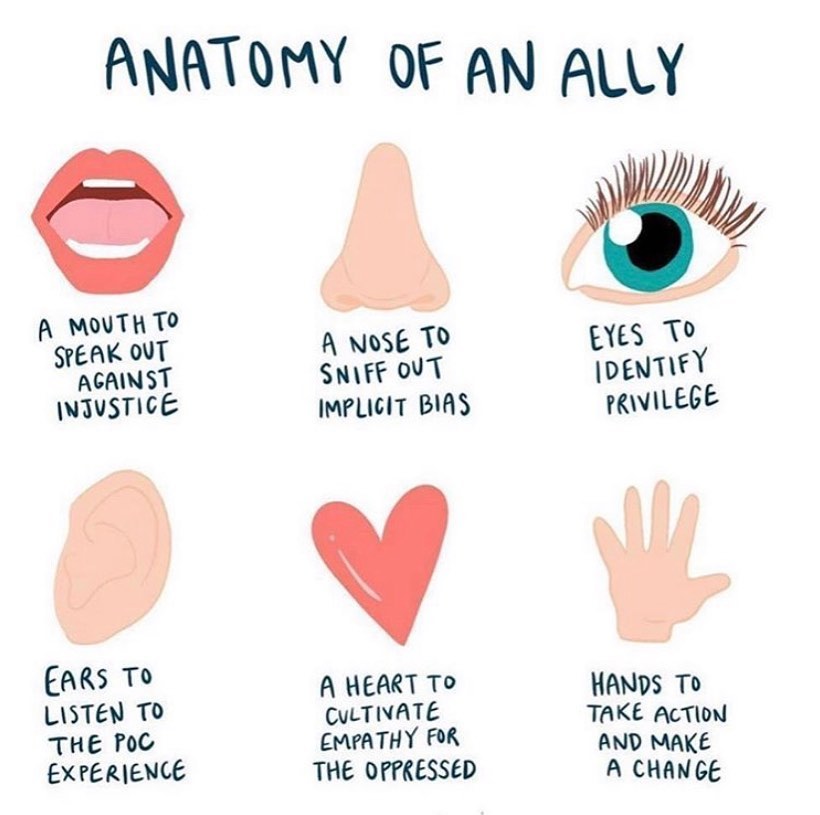 ANATOMY OF AN ALLY
A MOUTH TO
SPEAK OUT
AGAINST
INJUSTICE
A NOSE TO
SNIFF OUT
IMPLICIT BIAS
EYES TO
IDENTIFY
PRIVILEGE
EARS TO
LISTEN TO
THE POC
EXPERIENCE
A HEART TO
CULTIVATE
EMPATHY FOR
THE OPPRESSED
HANDS TO
TAKE ACTION
AND MAKE
A CHANGE